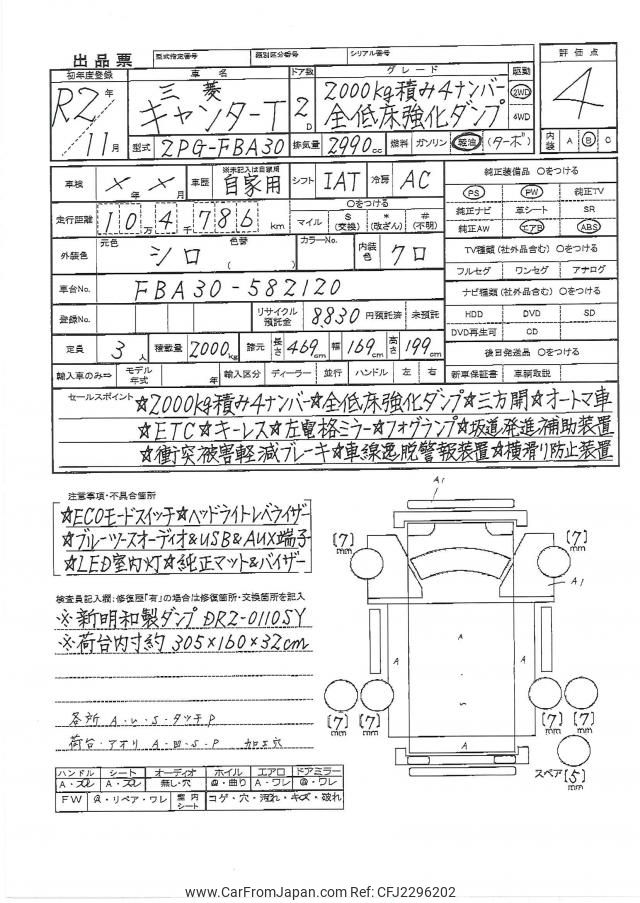 出品票 型式指定番号 類別区分番号 シリアル番号
初年度登録 車名 ドア数 グレード 駆動 評価点
R2年 11月 三菱 キャンターT 2D 2000kg積み4ナンバー 2WD 4
全低床強化ダンプ 4WD
型式 2PG-FBA30 排気量 2990cc 燃料 ガソリン 軽油 (ターボ) 内装 A B C
車検 ×年×月 車歴 ※未記入は自家用 自家用 シフト IAT 冷房 AC 純正装備品 ○をつける
PS PW 純正TV
走行距離 10万4千786km ○をつける マイル $(交換) *(改ざん) #(不明) 純正ナビ 革シート SR
純正AW エアB ABS
外装色 元色 シロ 色替 ( ) カラーNo. 内装色 クロ TV種類(社外品含む) ○をつける
フルセグ ワンセグ アナログ
車台No. FBA30-582120 ナビ種類(社外品含む) ○をつける
登録No. リサイクル預託金 8830 円預託済 未預託 HDD DVD SD
DVD再生可 CD
定員 3人 積載量 2000kg 諸元 長さ469cm 幅169cm 高さ199cm 後日発送品 ○をつける
輸入車のみ⇒ モデル年式 年 輸入区分 ディーラー 並行 ハンドル 左 右 新車保証書 車輌取説
セールスポイント ☆2000kg積み4ナンバー☆全低床強化ダンプ☆三方開☆オートマ車
☆ETC☆キーレス☆左電格ミラー☆フォグランプ☆坂道発進補助装置
☆衝突被害軽減ブレーキ☆車線逸脱警報装置☆横滑り防止装置
注意事項・不具合箇所
☆ECOモードスイッチ☆ヘッドライトレベライザー
☆ブルーツースオーディオ&USB&AUX端子
☆LED室内灯☆純正マット&バイザー
検査員記入欄:修復歴「有」の場合は修復箇所・交換箇所を記入
※新明和製ダンプ DR2-0110SY
※荷台内寸約 305×160×32cm
各所 A・U・S・タッチP
荷台・アオリ A・凹・S・P 加工穴
A1
[7]mm [7]mm
A1
A A A
S
A
[7]mm [7]mm [7]mm [7]mm
スペア[5]mm
ハンドル シート オーディオ ホイル エアロ ドアミラー
A・スレ A・スレ 無し・穴 ・曲り A・ワレ ・ワレ
FW ・リペア・ワレ 室内シート コゲ・穴・汚れ・キズ・破れ
www.CarFromJapan.com Ref: CFJ2296202